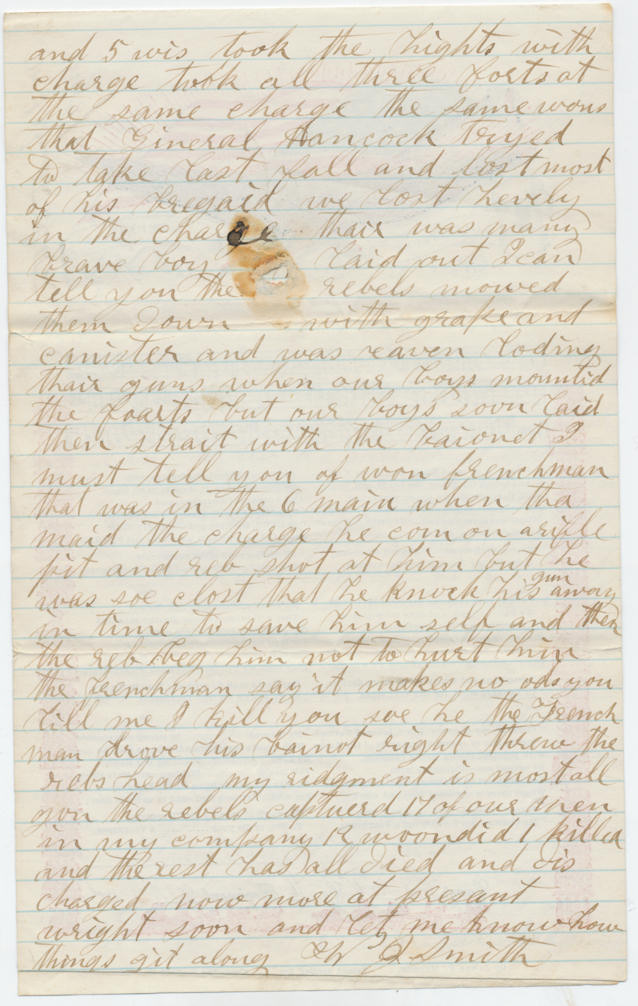 and 5 wis took the hights with
charge took all three forts at
the same charge the same wons
that Gineral Hancock Tryed
to take last fall and lost most
of his bregaid we lost hevely
in the charge thair was many
brave boy laid out I can
tell you the rebels mowed
them down with grape and
canister and was eaven loding
thair guns when our boys mountid
the foarts but our boys soon laid
then strait with the baionet I
must tell you of won frenchman
that was in the 6 main when tha
maid the charge he com on a rifle
pit and reb shot at him but he
was soe clost that he knock his gun away
in time to save him self and then
the reb beg him not to hurt him
the frenchman say it makes no ods you
kill me I kill you soe he the French
man drove his bainot right threw the
rebs head my ridgment is most all
gon the rebels captuerd 17 of our men
in my company 12 woondid 1 killed
and the rest has all died and dis
charged now more at presant
wright soon and let me know how
things git along W J Smith